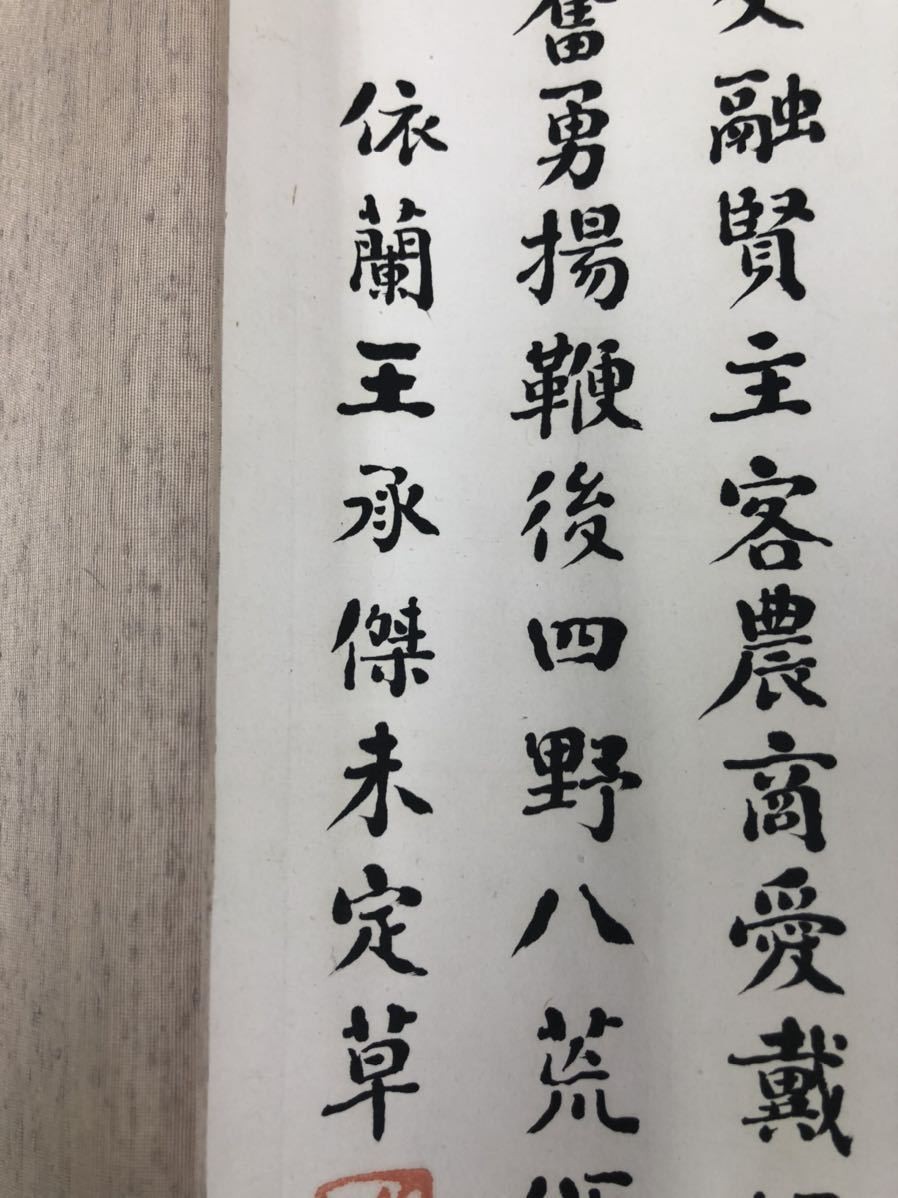 融賢主客農商愛戴
奮勇揚鞭後四野八荒
依蘭王承傑未定草